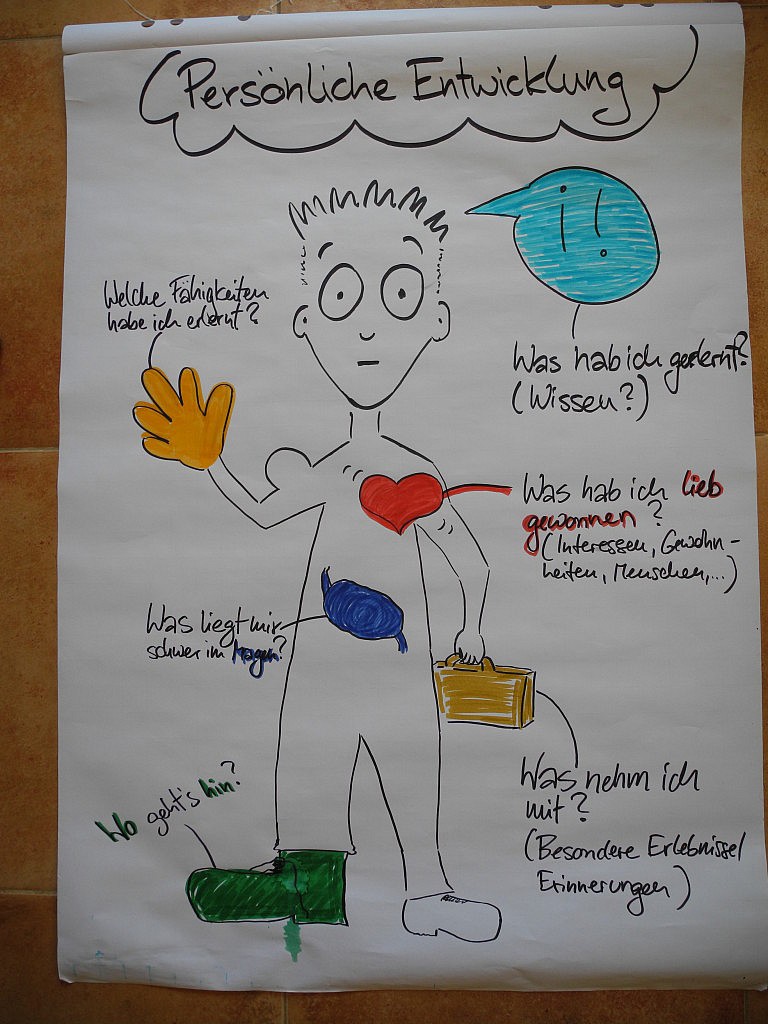 Persönliche Entwicklung
Welche Fähigkeiten
habe ich erlernt?
Was hab ich gelernt?
(Wissen?)
Was hab ich lieb
gewonnen?
(Interessen, Gewohn-
heiten, Menschen,...)
Was liegt mir
schwer im Magen?
Was nehm ich
mit?
(Besondere Erlebnisse/
Erinnerungen)
Wo geht's hin?